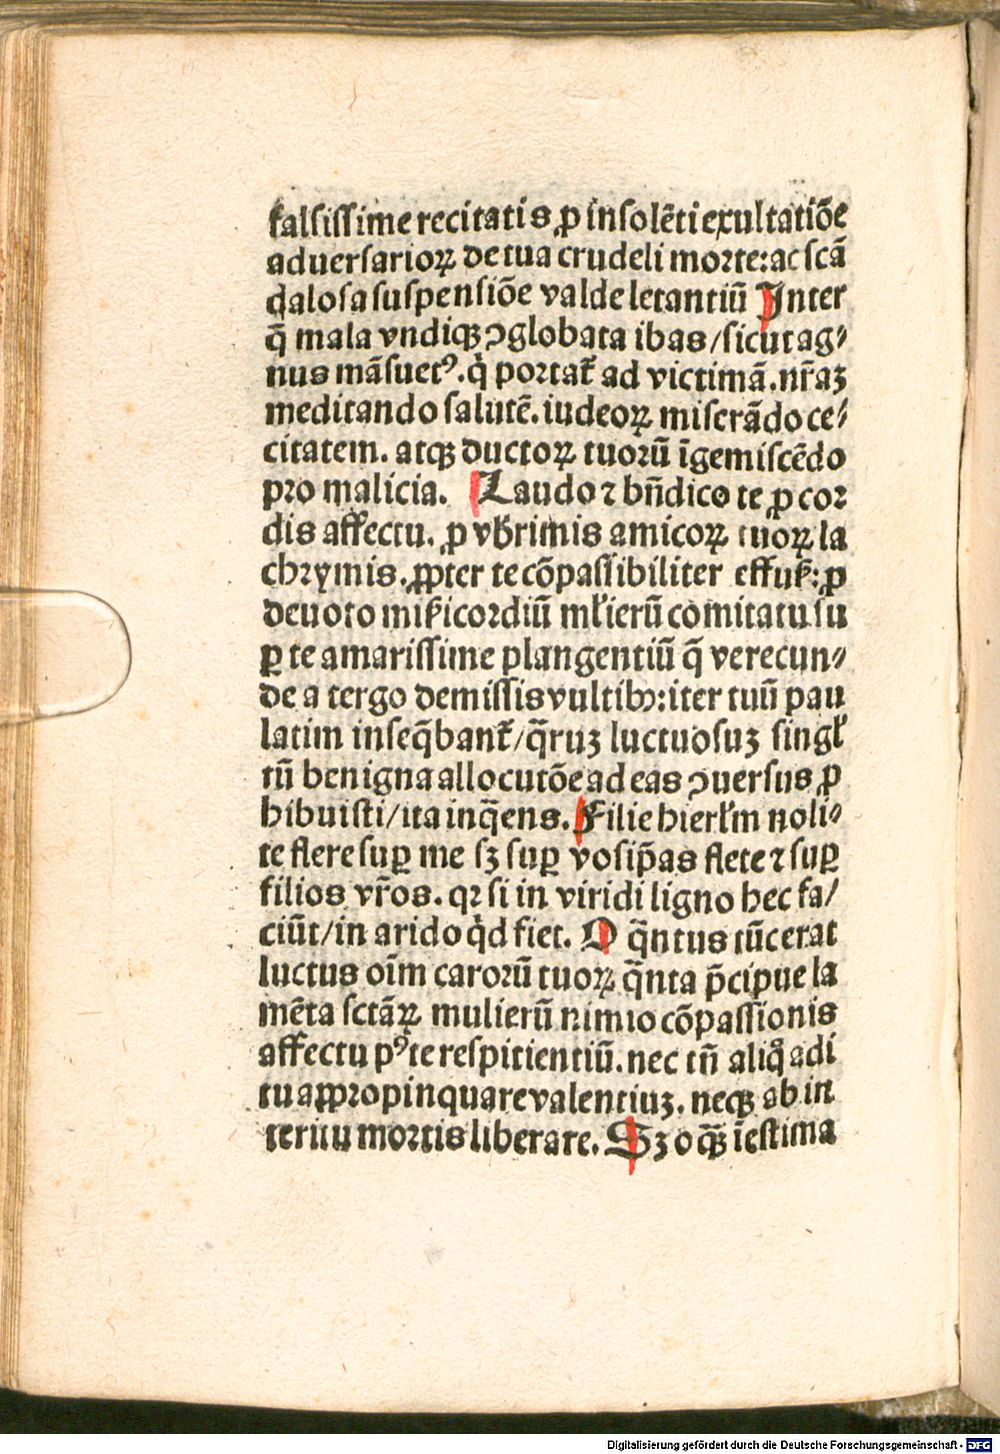 falsissime recitatis ꝓ insolēti exultatiōe
aduersarioꝝ de tua crudeli morte: ac scā
dalosa suspensiōe valde letantiū Inter
q̄ mala vndiqꝫ ↄglobata ibas / sicut ag⸗
nus māsuetꝰ. q̇ portat᷑ ad victimā. nr̄aꝫ
meditando salutē. iudeoꝝ miserādo ce⸗
citatem. atqꝫ ductoꝝ tuorū īgemiscēdo
pro malicia. Laudo ⁊ bn̄dico te ꝓ cor
dis affectu. ꝓ vb̓rimis amicoꝝ tuoꝝ la
chrymis. ꝓpter te cōpassibiliter effus̓: ꝓ
deuoto mis̓icordiū ml̓ierū comitatu su
ꝑ te amarissime plangentiū q̄ verecun⸗
de a tergo demissis vultibꝰ: iter tuū pau
latim inseq̄bant᷑ / q̄ruꝫ luctuosuꝫ singl̓
tū benigna allocutōe ad eas ↄuersus ꝓ
hibuisti / ita inq̄ens. Filie hierl̓m noli⸗
te flere suꝑ me sꝫ suꝑ vos ip̄as flete ⁊ suꝑ
filios vr̄os. qꝛ si in viridi ligno hec fa/
ciūt / in arido q̇d fiet. O q̄ntus tūc erat
luctus oīm carorū tuoꝝ q̄nta p̄cipue la
mēta sctāꝝ mulierū nimio cōpassionis
affectu pꝰ te respitientiū. nec tn̄ aliq̊ adi
tu appropinquare valentiuꝫ. neqꝫ ab in
teritu mortis liberare. Sꝫ o qꝫ̄ īestima
Digitalisierung gefördert durch die Deutsche Forschungsgemeinschaft - DFG